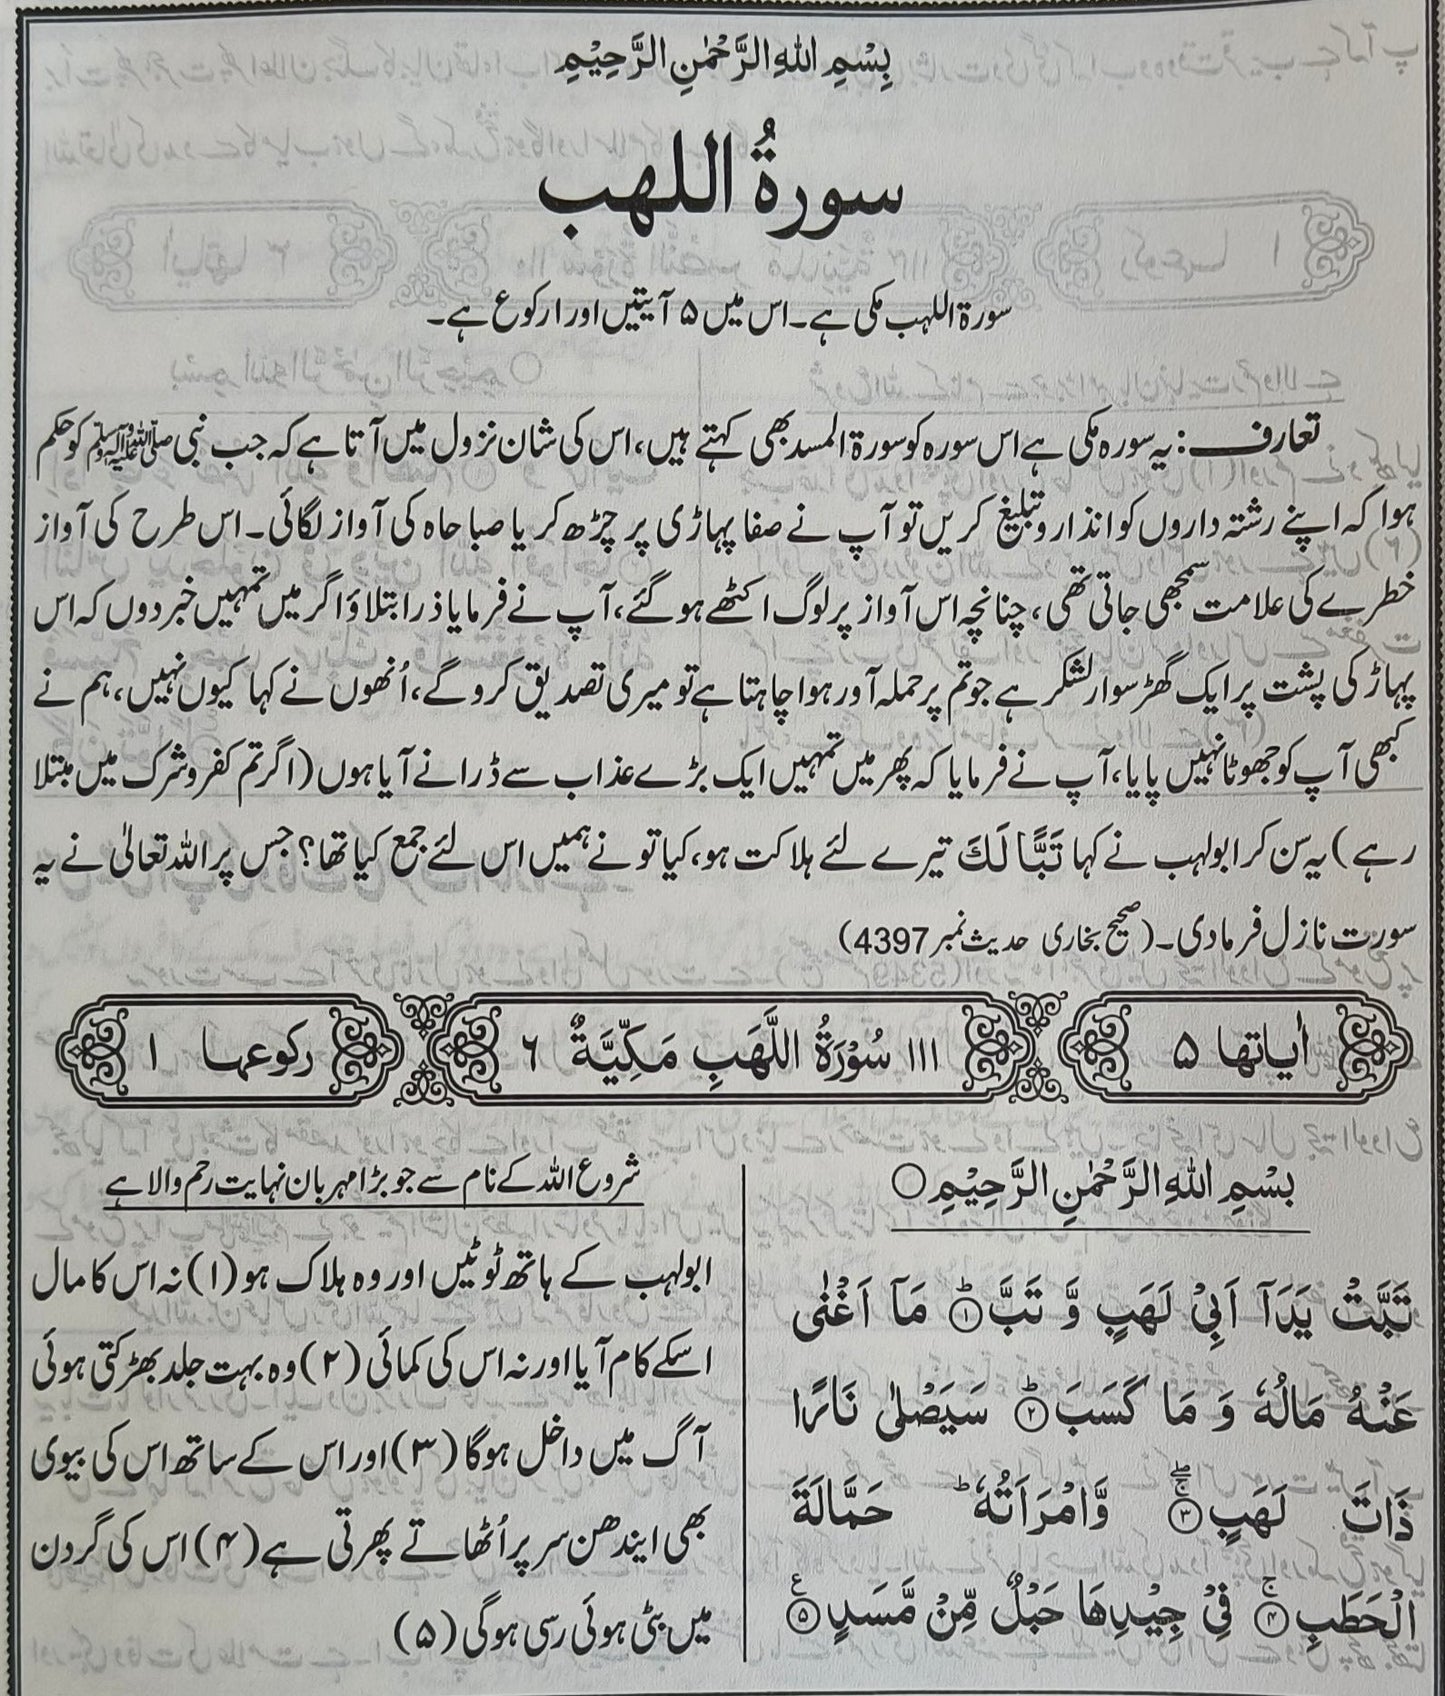 بِسْمِ اللهِ الرَّحْمٰنِ الرَّحِيْمِ
سورۃُ اللھب
سورۃ اللہب مکی ہے۔ اس میں ۵ آیتیں اور ۱ رکوع ہے۔
تعارف: یہ سورہ مکی ہے اس سورہ کو سورۃ المسد بھی کہتے ہیں، اس کی شان نزول میں آتا ہے کہ جب نبی ﷺ کو حکم
ہوا کہ اپنے رشتہ داروں کو انذار و تبلیغ کریں تو آپ نے صفا پہاڑی پر چڑھ کر یا صباحاہ کی آواز لگائی۔ اس طرح کی آواز
خطرے کی علامت سمجھی جاتی تھی، چنانچہ اس آواز پر لوگ اکٹھے ہو گئے، آپ نے فرمایا ذرا بتلاؤ اگر میں تمہیں خبر دوں کہ اس
پہاڑ کی پشت پر ایک گھڑ سوار لشکر ہے جو تم پر حملہ آور ہوا چاہتا ہے تو میری تصدیق کرو گے، اُنھوں نے کہا کیوں نہیں، ہم نے
کبھی آپ کو جھوٹا نہیں پایا، آپ نے فرمایا کہ پھر میں تمہیں ایک بڑے عذاب سے ڈرانے آیا ہوں (اگر تم کفر و شرک میں مبتلا
رہے) یہ سن کر ابولہب نے کہا تَبًّا لَكَ تیرے لئے ہلاکت ہو، کیا تو نے ہمیں اس لئے جمع کیا تھا؟ جس پر اللہ تعالیٰ نے یہ
سورت نازل فرما دی۔ (صحیح بخاری حدیث نمبر 4397)
اٰیاتھا ۵ ۱۱۱ سُوْرَۃُ اللَّھَبِ مَکِّیَّۃٌ ۶ رکوعہا ۱
بِسْمِ اللهِ الرَّحْمٰنِ الرَّحِيْمِ ○
تَبَّتْ يَدَآ اَبِيْ لَهَبٍ وَّ تَبَّ ؕ۝۱ مَآ اَغْنٰى
عَنْهُ مَالُهٗ وَ مَا كَسَبَ ؕ۝۲ سَيَصْلٰى نَارًا
ذَاتَ لَهَبٍ ۚۖ۝۳ وَّامْرَاَتُهٗ ؕ حَمَّالَةَ
الْحَطَبِ ۚ۝۴ فِيْ جِيْدِهَا حَبْلٌ مِّنْ مَّسَدٍ ۝۵ ع
شروع اللہ کے نام سے جو بڑا مہربان نہایت رحم والا ہے
ابولہب کے ہاتھ ٹوٹیں اور وہ ہلاک ہو (۱) نہ اس کا مال
اسکے کام آیا اور نہ اس کی کمائی (۲) وہ بہت جلد بھڑکتی ہوئی
آگ میں داخل ہوگا (۳) اور اس کے ساتھ اس کی بیوی
بھی ایندھن سر پر اُٹھاتے پھرتی ہے (۴) اس کی گردن
میں بٹی ہوئی رسی ہوگی (۵)